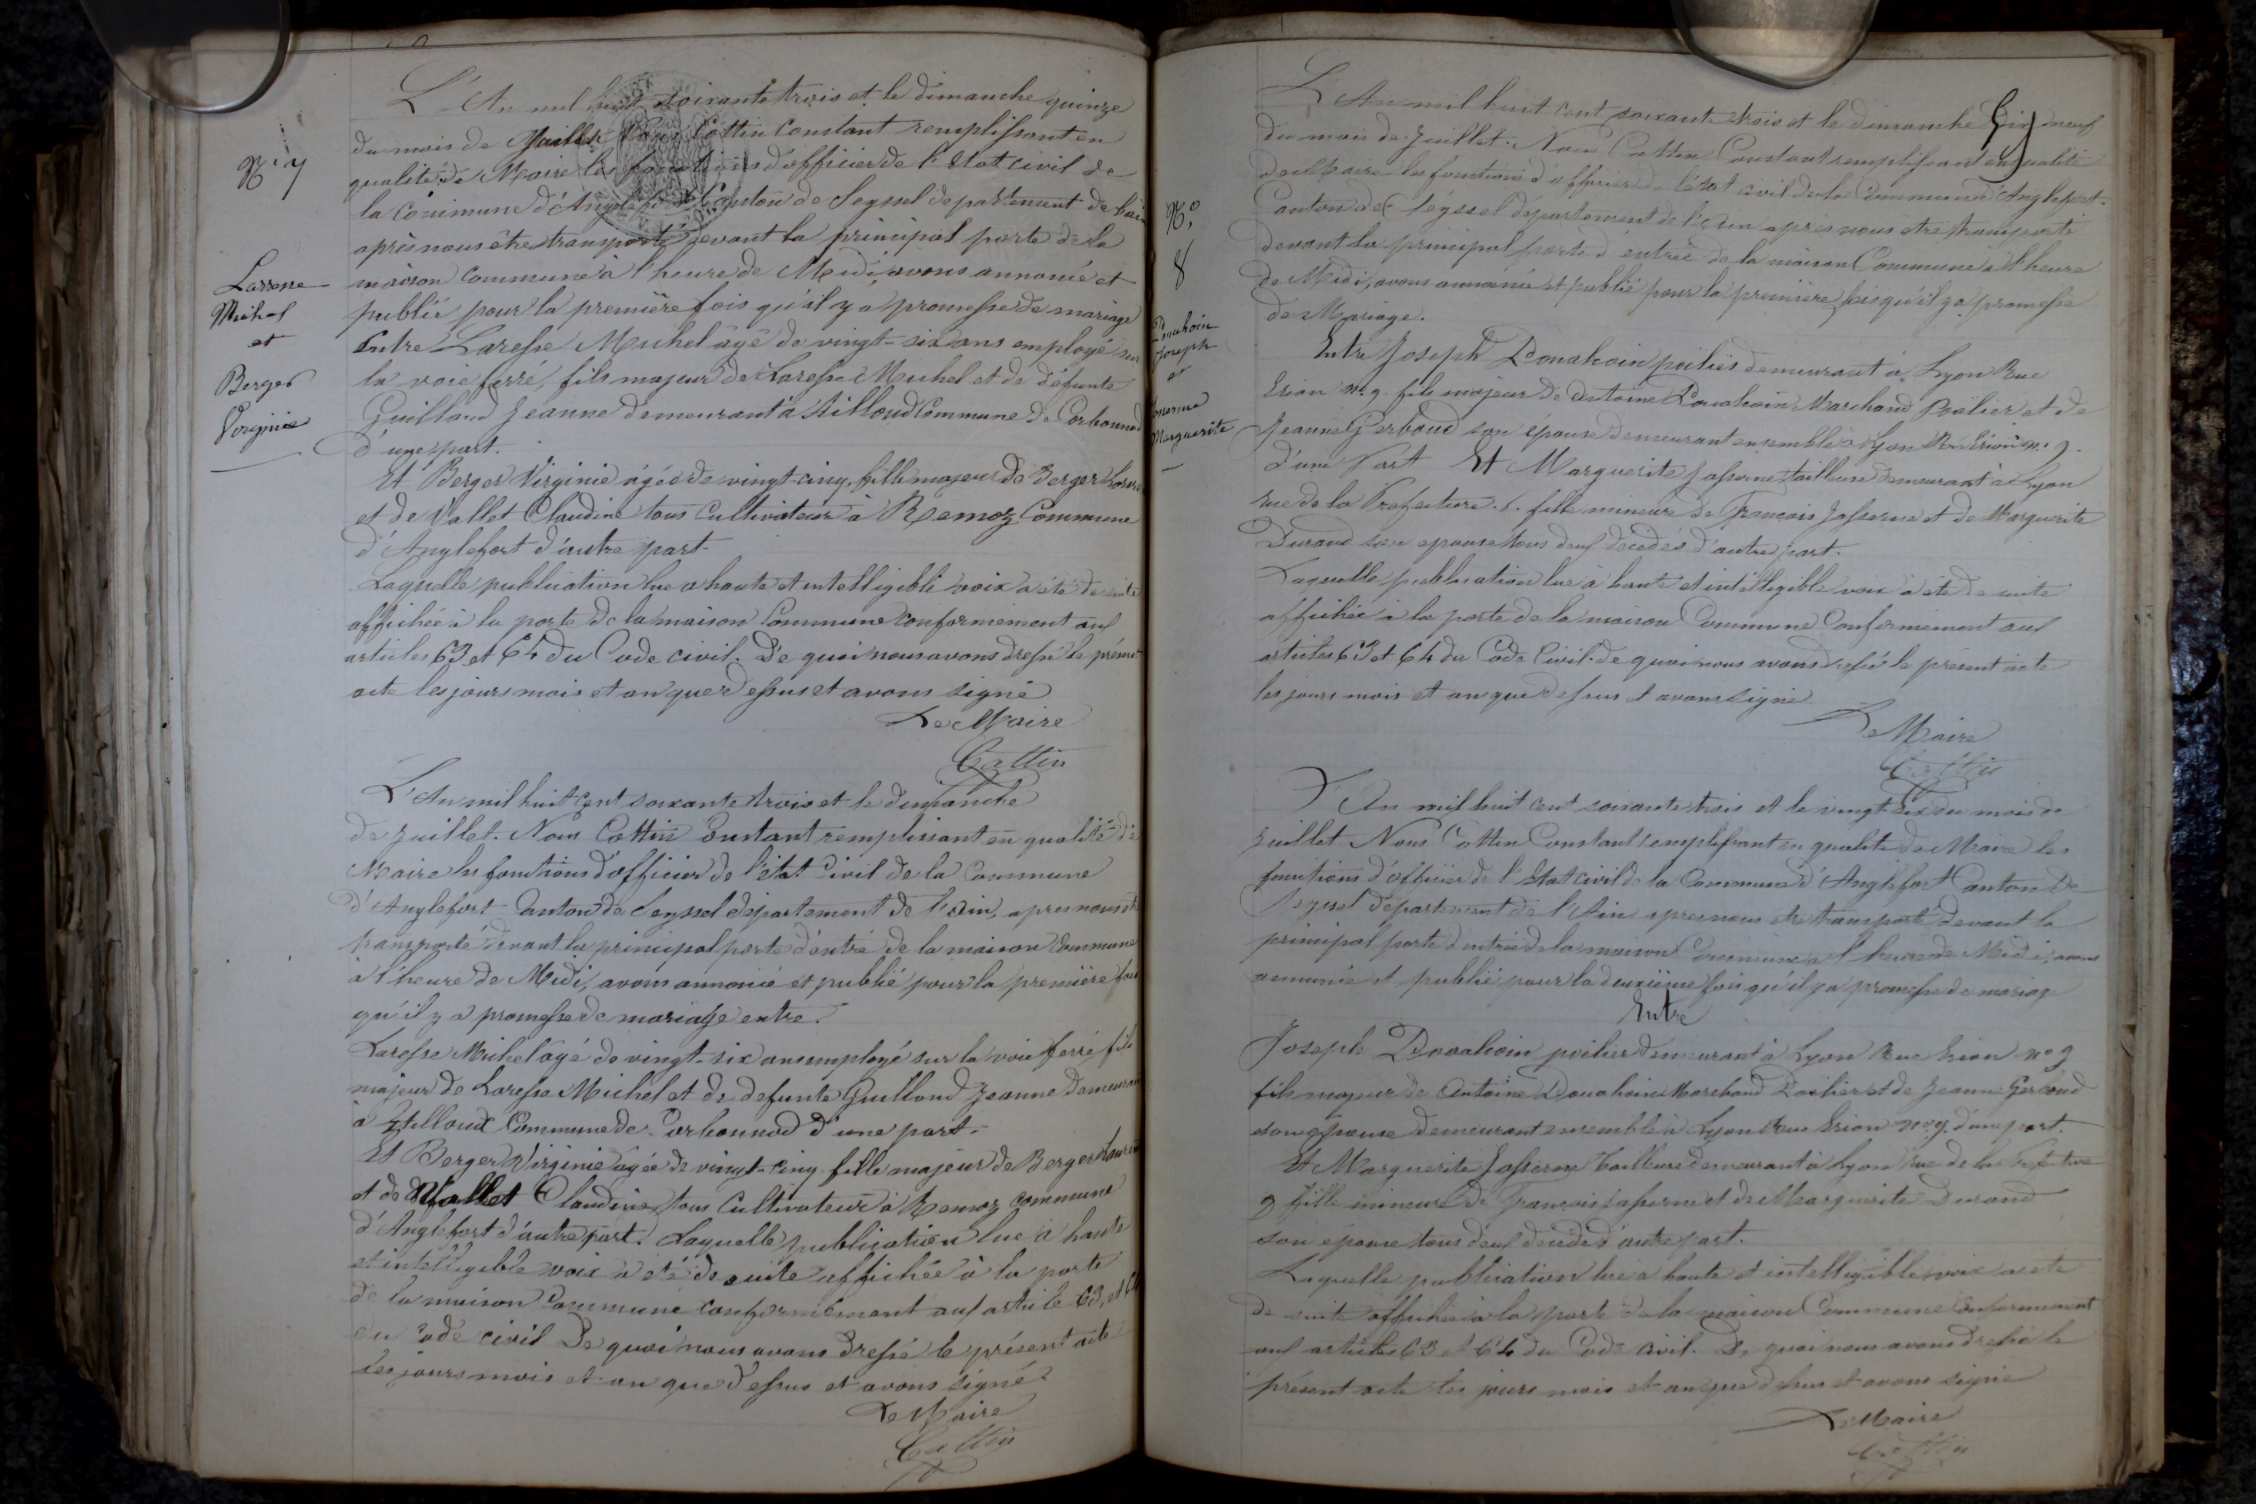 L'An mil huit soixante trois et le dimanche quinze
du mois de Juillet Nous Cottin Constant remplissant en
qualité de Maire les fonctions d'officier de l'Etat civil de
la Commune d'Anglefort Canton de Seyssel departement de l'ain
après nous être transporté devant la principal porte de la
maison commune à l'heure de Midi, avons annoncé et
publié pour la première fois qu'il y a promesse de mariage
Entre Laresse Michel âgé de vingt-six ans employé sur
la voie ferré, fils majeur de Laresse Michel et de défunte
Guilland Jeanne demeurant à Commune de Corbonnod
d'une part.
Et Berger Virginie agée de vingt-cinq, fille majeur de Berger
et de Vallet Claudine tous Cultivateur à Remoz Commune
d'Anglefort d'autre part.
Laquelle publication lue a haute et intelligible voix a été de suite
affichée à la porte de la maison Commune conformement aux
articles 63 et 64 du Code civil. De quoi nous avons dressé le présent
acte les jours mois et an que dessus et avons signé
Le Maire
Cottin
N° 7
Laresse
Michel
et
Berger
Virginie
L'An mil huit cent soixante trois et le dimanche
de Juillet. Nous Cottin Constant remplissant en qualité de
Maire les fonctions d'officier de l'état Civil de la Commune
d'Anglefort Canton de Seyssel département de l'ain, apres nous être
transporté devant la principal porte d'entré de la maison Commune
à l'heure de Midi, avons annoncé et publié pour la première fois
qu'il y a promesse de mariage entre.
Laresse Michel agé de vingt-six ans employé sur la voie ferré fils
majeur de Laresse Michel et de defunte Guilland Jeanne demeurant
à Commune de Corbonnod d'une part.
Et Berger Virginie agée de vingt-cinq fille majeur de Berger Laurent
et de Vallet Claudine tous Cultivateur à Remoz commune
d'Anglefort d'autre part. Laquelle publication lue à haute
et intelligible voix a été de suite affichée à la porte
de la maison Commune conformément aux article 63, et 64
du Code civil De quoi nous avons dressé le présent acte
les jours mois et an que dessus et avons signé
Le Maire
Cottin
L'An mil huit cent soixante trois et le dimanche Dix neuf
du mois de Juillet. Nous Cottin Constant remplissant en qualité
de Maire les fonctions d'officier de l'état civil de la Commune d'Anglefort.
Canton de Seyssel département de l'ain après nous être transporté
devant la principal porte d'entrée de la maison Commune à l'heure
de Midi, avons annoncé et publié pour la première fois qu'il y a promesse
de Mariage.
Entre Joseph poëlier demeurant à Lyon Rue
n° 9. fils majeur de Antoine Marchand Poëlier et de
Jeanne Gerbaud son épouse demeurant ensemble à Lyon n° 9.
d'une Part Et Marguerite Josserme tailleuse demeurant à Lyon
rue de la Prefecture fille mineure de François Josserme et de Marguerite
Durand son epouse tous deux décédés d'autre part.
Laquelle publication lue à haute et intelligible voix a été de suite
affichée à la porte de la maison Commune Conformement aux
articles 63 et 64 du Code Civil. de quoi nous avons dressé le présent acte
les jours mois et an que dessus et avons signé
Le Maire
Cottin
N°
8
Joseph
et
Marguerite
L'An mil huit cent soixante trois et le vingt six du mois de
Juillet Nous Cottin Constant remplissant en qualité de Maire les
fonctions d'officier de l'Etat civil de la Commune d'Anglefort Canton de
Seyssel département de l'Ain apres nous etre transporté devant la
principal porte d'entrée de la maison Commune à l'heure de Midi, avons
annoncé et publié pour la deuxième fois qu'il y a promesse de mariage
Entre
Joseph poëlier demeurant à Lyon Rue n° 9
fils majeur de Antoine Marchand Poëlier et de Jeanne Gerbaud
son épouse demeurant ensemble à Lyon Rue n° 9. d'une part.
Et Marguerite Josserme tailleuse demeurant à Lyon Rue de la Prefecture
9 fille mineure de François Josserme et de Marguerite Durand
son épouse tous deux décédé d'autre part.
Laquelle publication lue à haute et intelligible voix a été
de suite affichée à la porte de la maison Commune Conformement
aux articles 63 et 64 du Code Civil. De quoi nous avons dressé le
présent acte les jours mois et an que dessus et avons signé
Le Maire
Cottin